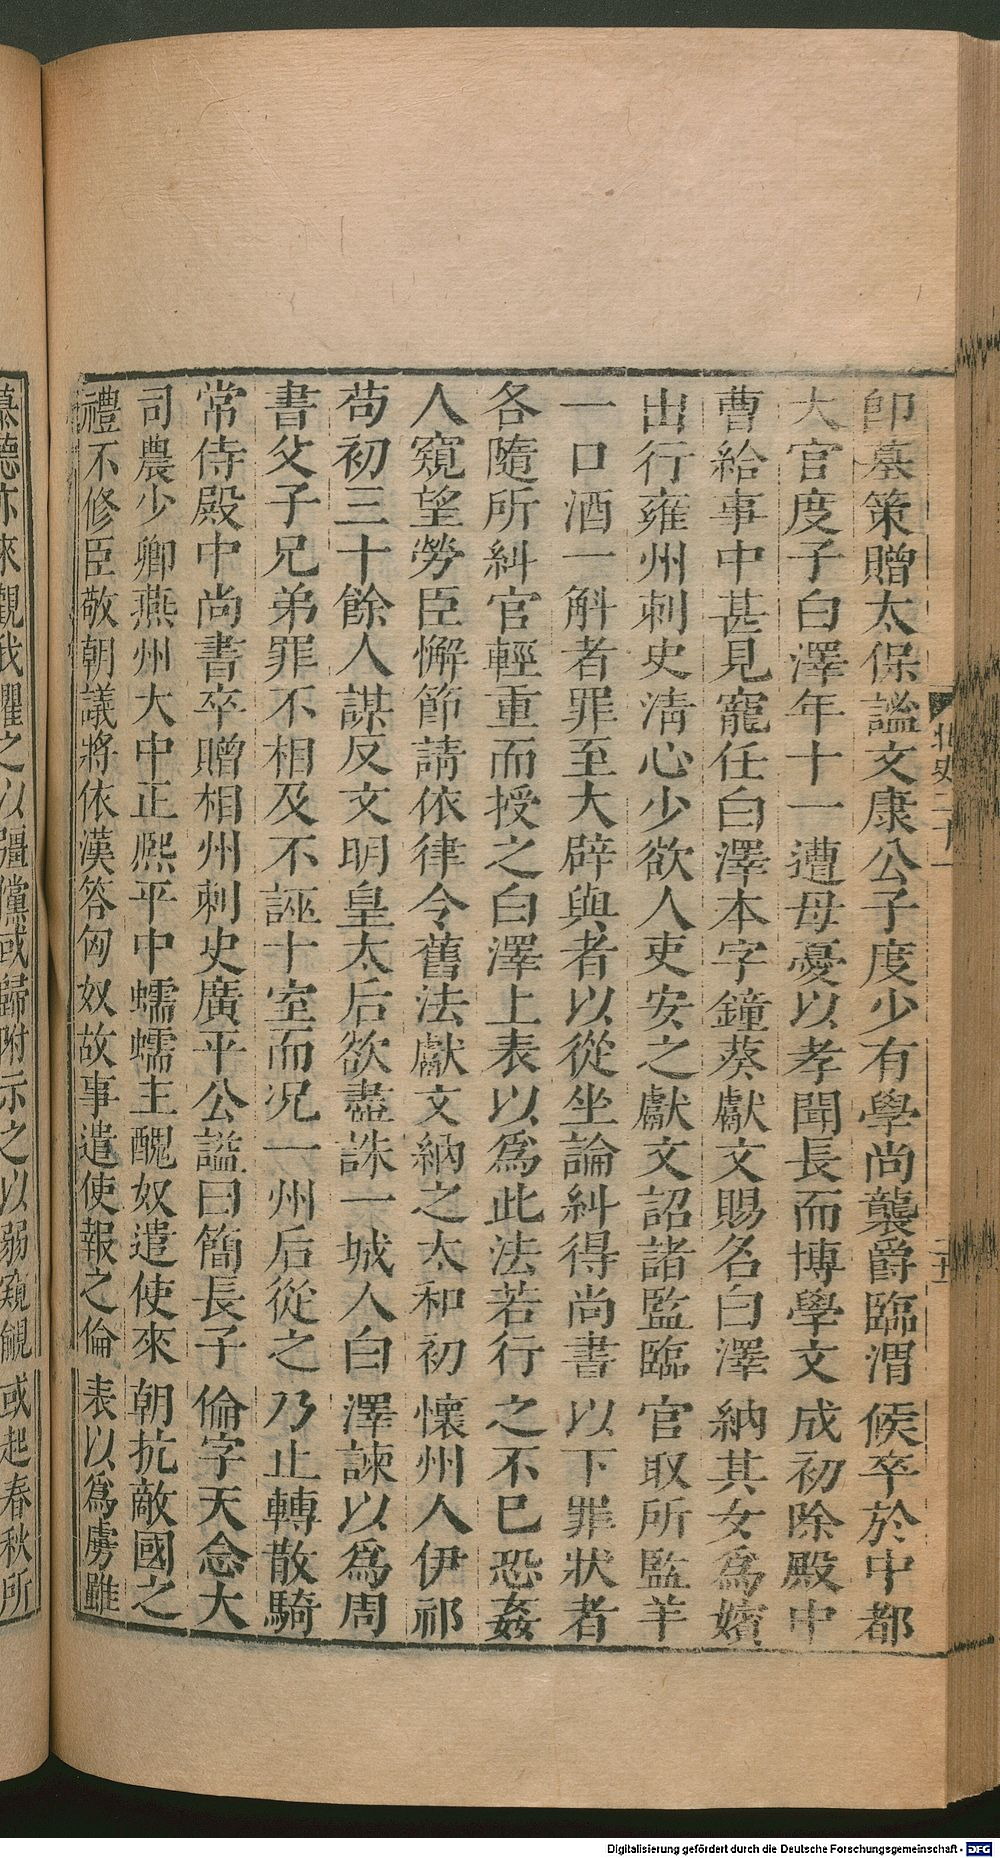 卽墓策贈太保謚文康公子度少有學尚襲爵臨渭候卒於中都
大官度子白澤年十一遭母憂以孝聞長而博學文成初除殿中
曹給事中甚見寵任白澤本字鐘葵獻文賜名白澤納其女爲嬪
出行雍州刺史淸心少欲人吏安之獻文詔諸監臨官取所監羊
一口酒一斛者罪至大辟與者以從坐論糾得尚書以下罪狀者
各隨所糾官輕重而授之白澤上表以爲此法若行之不已恐姦
人窺望勞臣懈節請依律令舊法獻文納之太和初懷州人伊祁
苟初三十餘人謀反文明皇太后欲盡誅一城人白澤諫以爲周
書父子兄弟罪不相及不誣十室而況一州后從之乃止轉散騎
常侍殿中尚書卒贈相州刺史廣平公謚曰簡長子倫字天念大
司農少卿燕州大中正熙平中蠕蠕主醜奴遣使來朝抗敵國之
禮不修臣敬朝議將依漢答匈奴故事遣使報之倫表以爲虜雖
慕德亦來觀我懼之以彊儻或歸附示之以弱窺覦或起春秋所
北史二十一
二十二
Digitalisierung gefördert durch die Deutsche Forschungsgemeinschaft - DFG